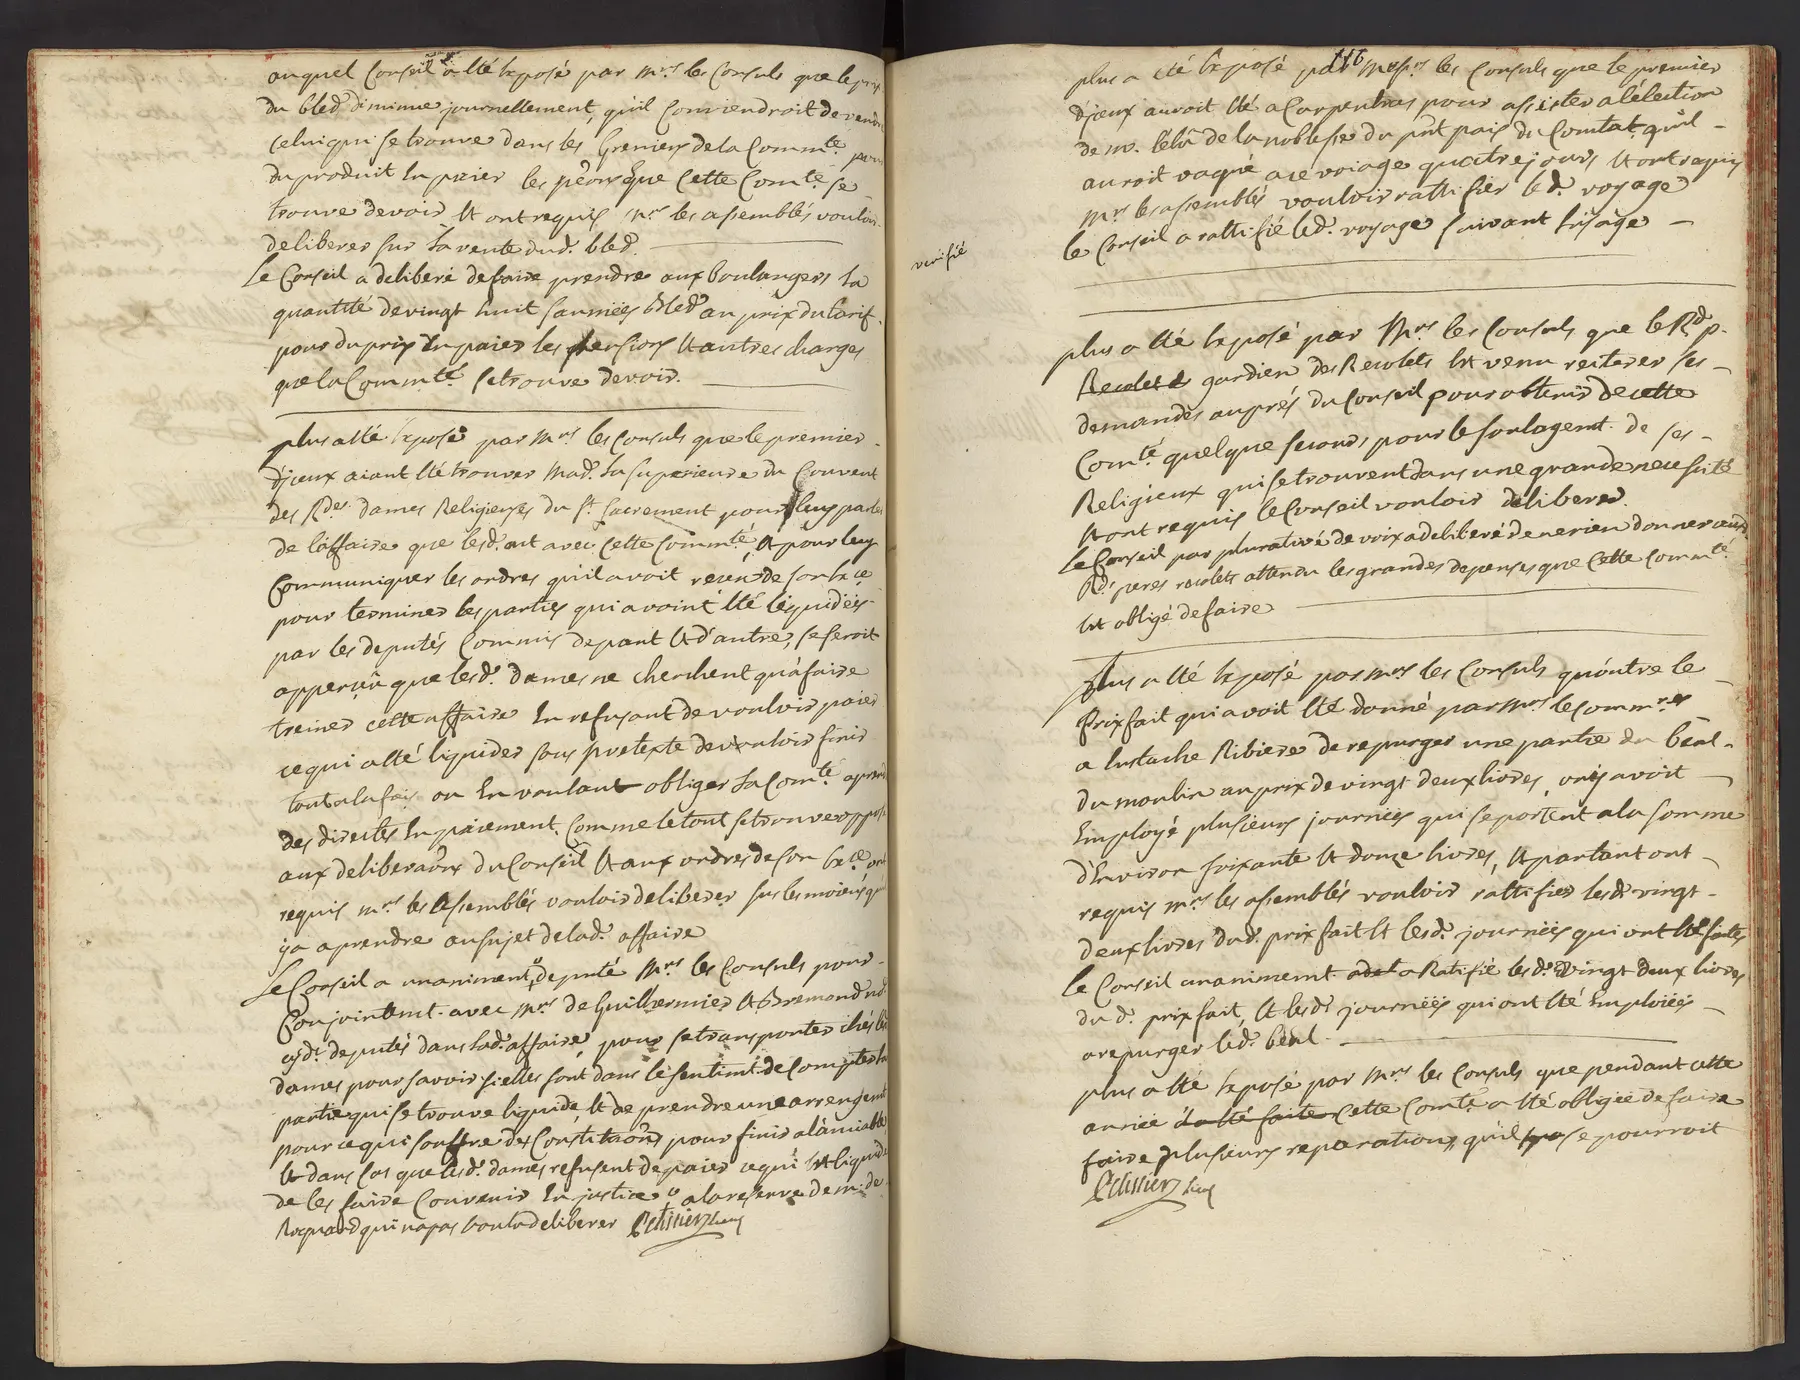 auquel Conseil a êté Exposé par Mrs. les Consuls que le prix
du bled diminue journellement, qu'il Conviendroit de vendre
celui qui se trouve dans les Greniers de la Commté. pour
du produit En païer les pñons que Cette Comté. se
trouve devoir Et ont requis Mrs. les assemblés vouloir
deliberer sur la vente dud. bled.
Le Conseil a deliberé de faire prendre aux boulangers la
quantité de vingt huit saumées bled au prix du tarif
pour du prix En païer les pensions Et autres charges
que la Commté. se trouve devoir.
plus a êté Exposé par Mrs. les Consuls que le premier
d'jceux aiant êté trouver Mad. la superieure du Couvent
des Rdes. Dames Religieuses du St. Sacrement pour leur parler
de l'affaire que lesd. ont avec cette Commté. Et pour leur
Communiquer les ordres qu'il avoit reçeu de son Exce.
pour terminer les parties qui avoint êté liquidées
par les deputés Commis de part Et d'autre, se seroit
apperçeu que lesd. Dames ne cherchent qu'a faire
treiner cette affaire En refusant de vouloir païer
ce qui a êté liquider sous pretexte de vouloir finir
tout a la fois ou En voulant obliger la Comté. a prendre
des directes En païement. Comme le tout se trouve opposé
aux deliberaõns du Conseil Et aux ordres de son Exce. ont
requis Mrs. les Assemblés vouloir deliberer sur les moiens qu'il
ÿ a a prendre au sujet de lad. affaire
Le Conseil a unaniment deputé Mrs. les Consuls pour
Conjointemt. avec Mrs. de Guilhermier Et Bremond
cÿdt. deputés dans lad. affaire, pour se transporter chés les
dames pour savoir si elles sont dans le sentimt. de Compter la
partie qui se trouve liquide, Et de prendre un arrengemt.
pour ce qui souffre des Constitutaõns pour finir a l'amiable
Et dans cas que lesd. dames refusent de païer ce qui Est liquide
de les faire Convenir En justice a la reserve de M. de
Roquard qui n'a pas voulu deliberer Pelissier
116
plus a êté Exposé par Messrs. les Consuls que le premier
d'jceux auroit êté a Carpentras pour assister a l'election
de M. l'élû de la noblesse du pñt païs du Comtat qu'il
auroit vaqué a ce voiage quatre jours Et ont requis
Mrs. les assemblés vouloir rattifier led. voyage
le Conseil a rattifié led. voyage suivant l'usage
verifié
plus a êté Exposé par Mrs. les Consuls que le Rd. p.
Recolet gardien des Recolets Est venu reiterer ses
demandes auprés du Conseil pour obtenir de cette
Comté. quelque secours pour le soulagemt. de ses
Religieux qui se trouvent dans une grande necessité
Et ont requis le Conseil vouloir deliberer.
Le Conseil par pluralité de voix a deliberé de ne rien donner auxd.
Rds. peres recolets attendu les grandes depenses que Cette Commté.
Est obligé de faire
Plus a êté Exposé par Mrs. les Consuls qu'outre le
Prixfait qui avoit êté donné par Mrs. le Commres.
a Eustache Ribiere de repurger une partie du béal
du moulin au prix de vingt deux livres,
Employé plusieurs journées qui se portent a la somme
d'Environ soixante Et douze livres, Et partant ont
requis Mrs. les assemblés vouloir rattifier lesd. vingt
deux livres dud. prixfait Et lesd. journées qui ont êté faites
Le Conseil unanimemt. a Ratifié lesd. vingt deux livres
du d. prixfait, Et lesd. journées qui ont êté Emploiées
a repurger led. béal.
plus a êté Exposé par Mrs. les Consuls que pendant cette
année a êté faite Cette Comté. a êté obligée de faire
faire plusieurs reparations, qu'il se pourroit
Pelissier